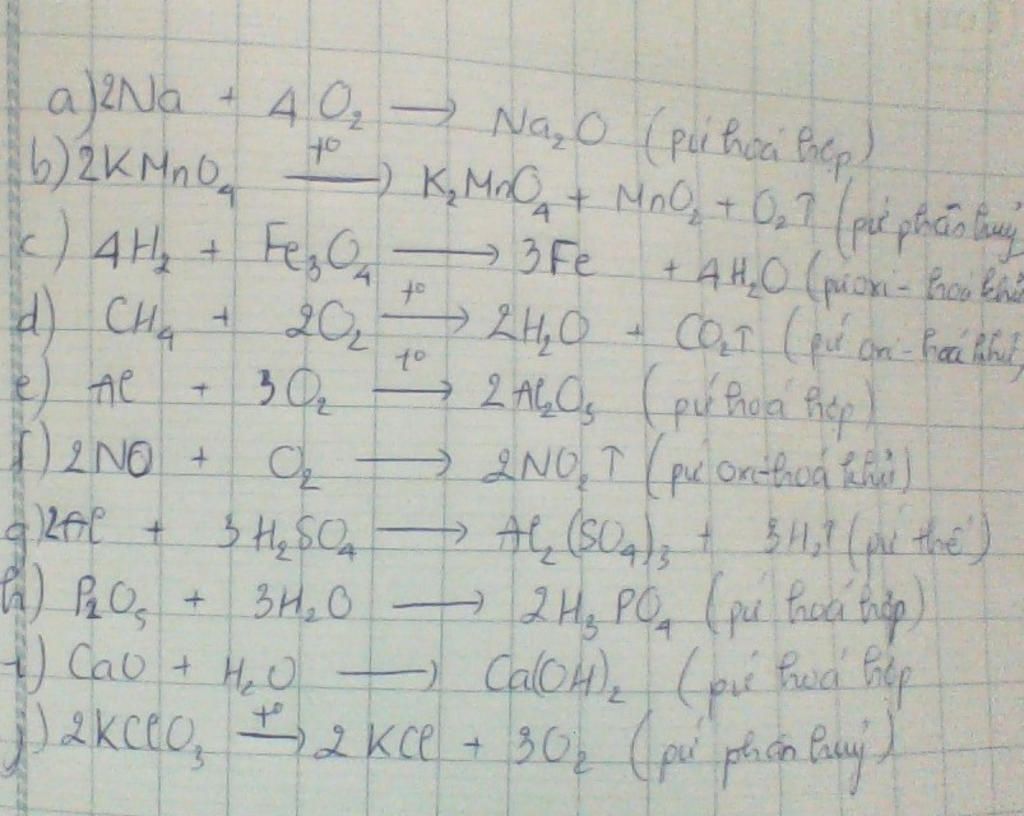 a) 2Na + 4O₂ → Na₂O (pứ hoá hợp)
b) 2KMnO₄ →(t°) K₂MnO₄ + MnO₂ + O₂↑ (pứ phân huỷ
c) 4H₂ + Fe₃O₄ → 3Fe + 4H₂O (pứ oxi-hoá khử
d) CH₄ + 2O₂ →(t°) 2H₂O + CO₂↑ (pứ oxi-hoá khử)
e) Al + 3O₂ →(t°) 2Al₂O₃ (pứ hoá hợp)
f) 2NO + O₂ → 2NO₂↑ (pứ oxi-hoá khử)
g) 2Al + 3H₂SO₄ → Al₂(SO₄)₃ + 3H₂↑ (pứ thế)
h) P₂O₅ + 3H₂O → 2H₃PO₄ (pứ hoá hợp)
i) CaO + H₂O → Ca(OH)₂ (pứ hoá hợp
j) 2KClO₃ →(t°) 2KCl + 3O₂ (pứ phân huỷ)